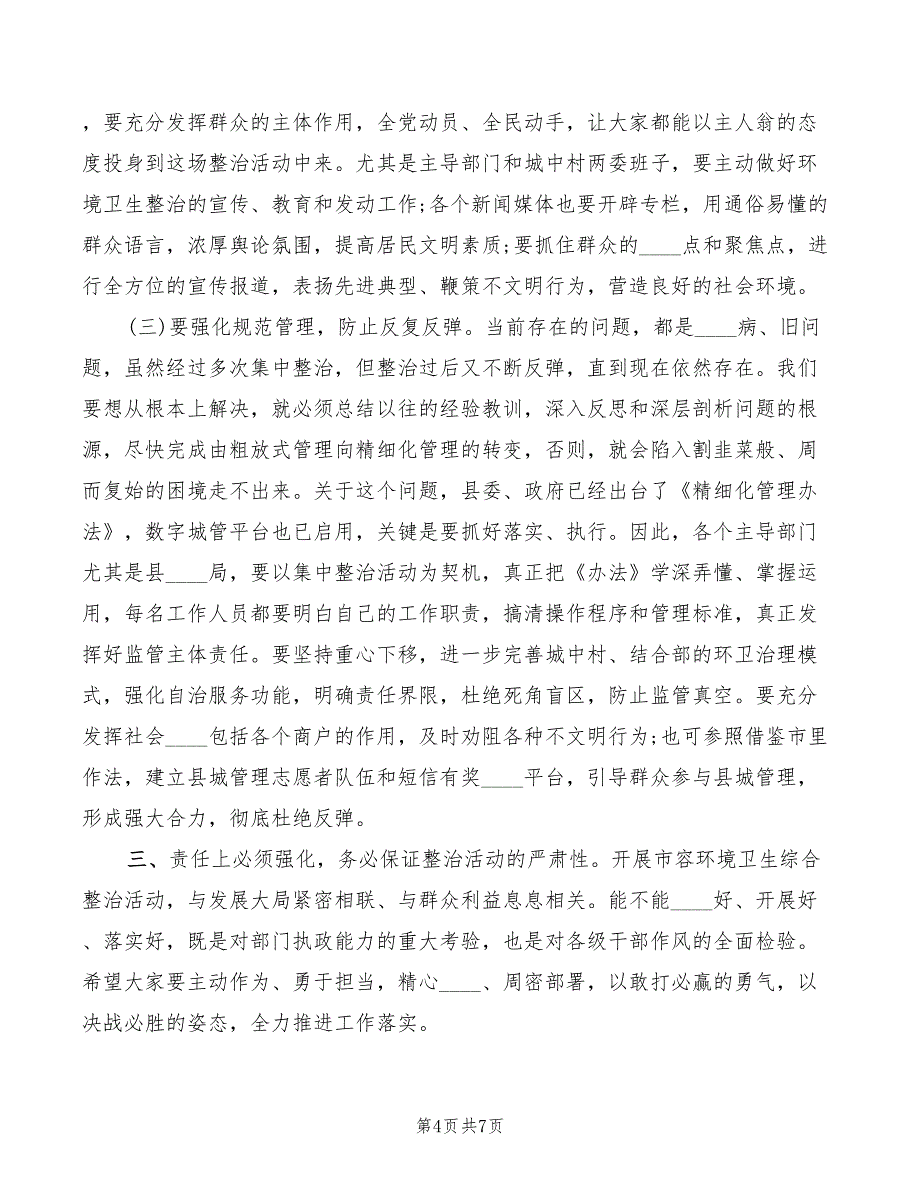 ，要充分发挥群众的主体作用，全党动员、全民动手，让大家都能以主人翁的态
度投身到这场整治活动中来。尤其是主导部门和城中村两委班子，要主动做好环
境卫生整治的宣传、教育和发动工作;各个新闻媒体也要开辟专栏，用通俗易懂的
群众语言，浓厚舆论氛围，提高居民文明素质;要抓住群众的____点和聚焦点，进
行全方位的宣传报道，表扬先进典型、鞭策不文明行为，营造良好的社会环境。
(三)要强化规范管理，防止反复反弹。当前存在的问题，都是____病、旧问
题，虽然经过多次集中整治，但整治过后又不断反弹，直到现在依然存在。我们
要想从根本上解决，就必须总结以往的经验教训，深入反思和深层剖析问题的根
源，尽快完成由粗放式管理向精细化管理的转变，否则，就会陷入割韭菜般、周
而复始的困境走不出来。关于这个问题，县委、政府已经出台了《精细化管理办
法》，数字城管平台也已启用，关键是要抓好落实、执行。因此，各个主导部门
尤其是县____局，要以集中整治活动为契机，真正把《办法》学深弄懂、掌握运
用，每名工作人员都要明白自己的工作职责，搞清操作程序和管理标准，真正发
挥好监管主体责任。要坚持重心下移，进一步完善城中村、结合部的环卫治理模
式，强化自治服务功能，明确责任界限，杜绝死角盲区，防止监管真空。要充分
发挥社会____包括各个商户的作用，及时劝阻各种不文明行为;也可参照借鉴市里
作法，建立县城管理志愿者队伍和短信有奖____平台，引导群众参与县城管理，
形成强大合力，彻底杜绝反弹。
三、责任上必须强化，务必保证整治活动的严肃性。开展市容环境卫生综合
整治活动，与发展大局紧密相联、与群众利益息息相关。能不能____好、开展好
、落实好，既是对部门执政能力的重大考验，也是对各级干部作风的全面检验。
希望大家要主动作为、勇于担当，精心____、周密部署，以敢打必赢的勇气，以
决战必胜的姿态，全力推进工作落实。
第4页共7页